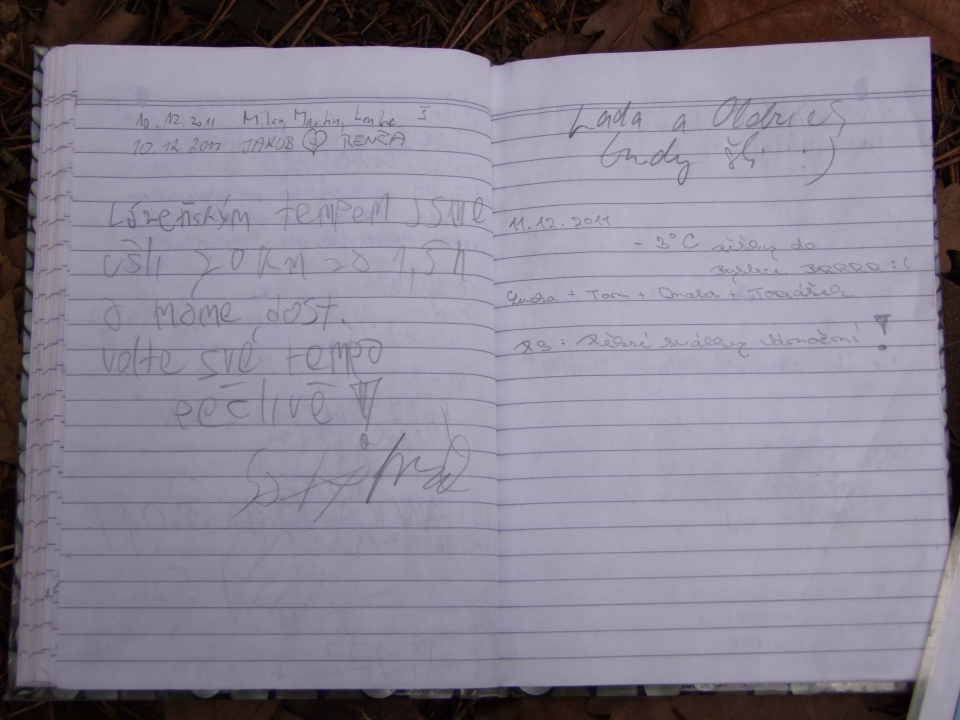 10.12.2011 Milan, Martin, Lenka Š
10 12 2011 JAKUB RENČA
Lázeňským tempem jsme
ušli 20 km za 1,5 h
a máme dost.
volte své tempo
pečlivě!
Lada a Oldřich
tudy šli :)
11.12.2011
- 3°C do
BRRRR :(
+ Tom + + Tomášek
PS: Vánoční!